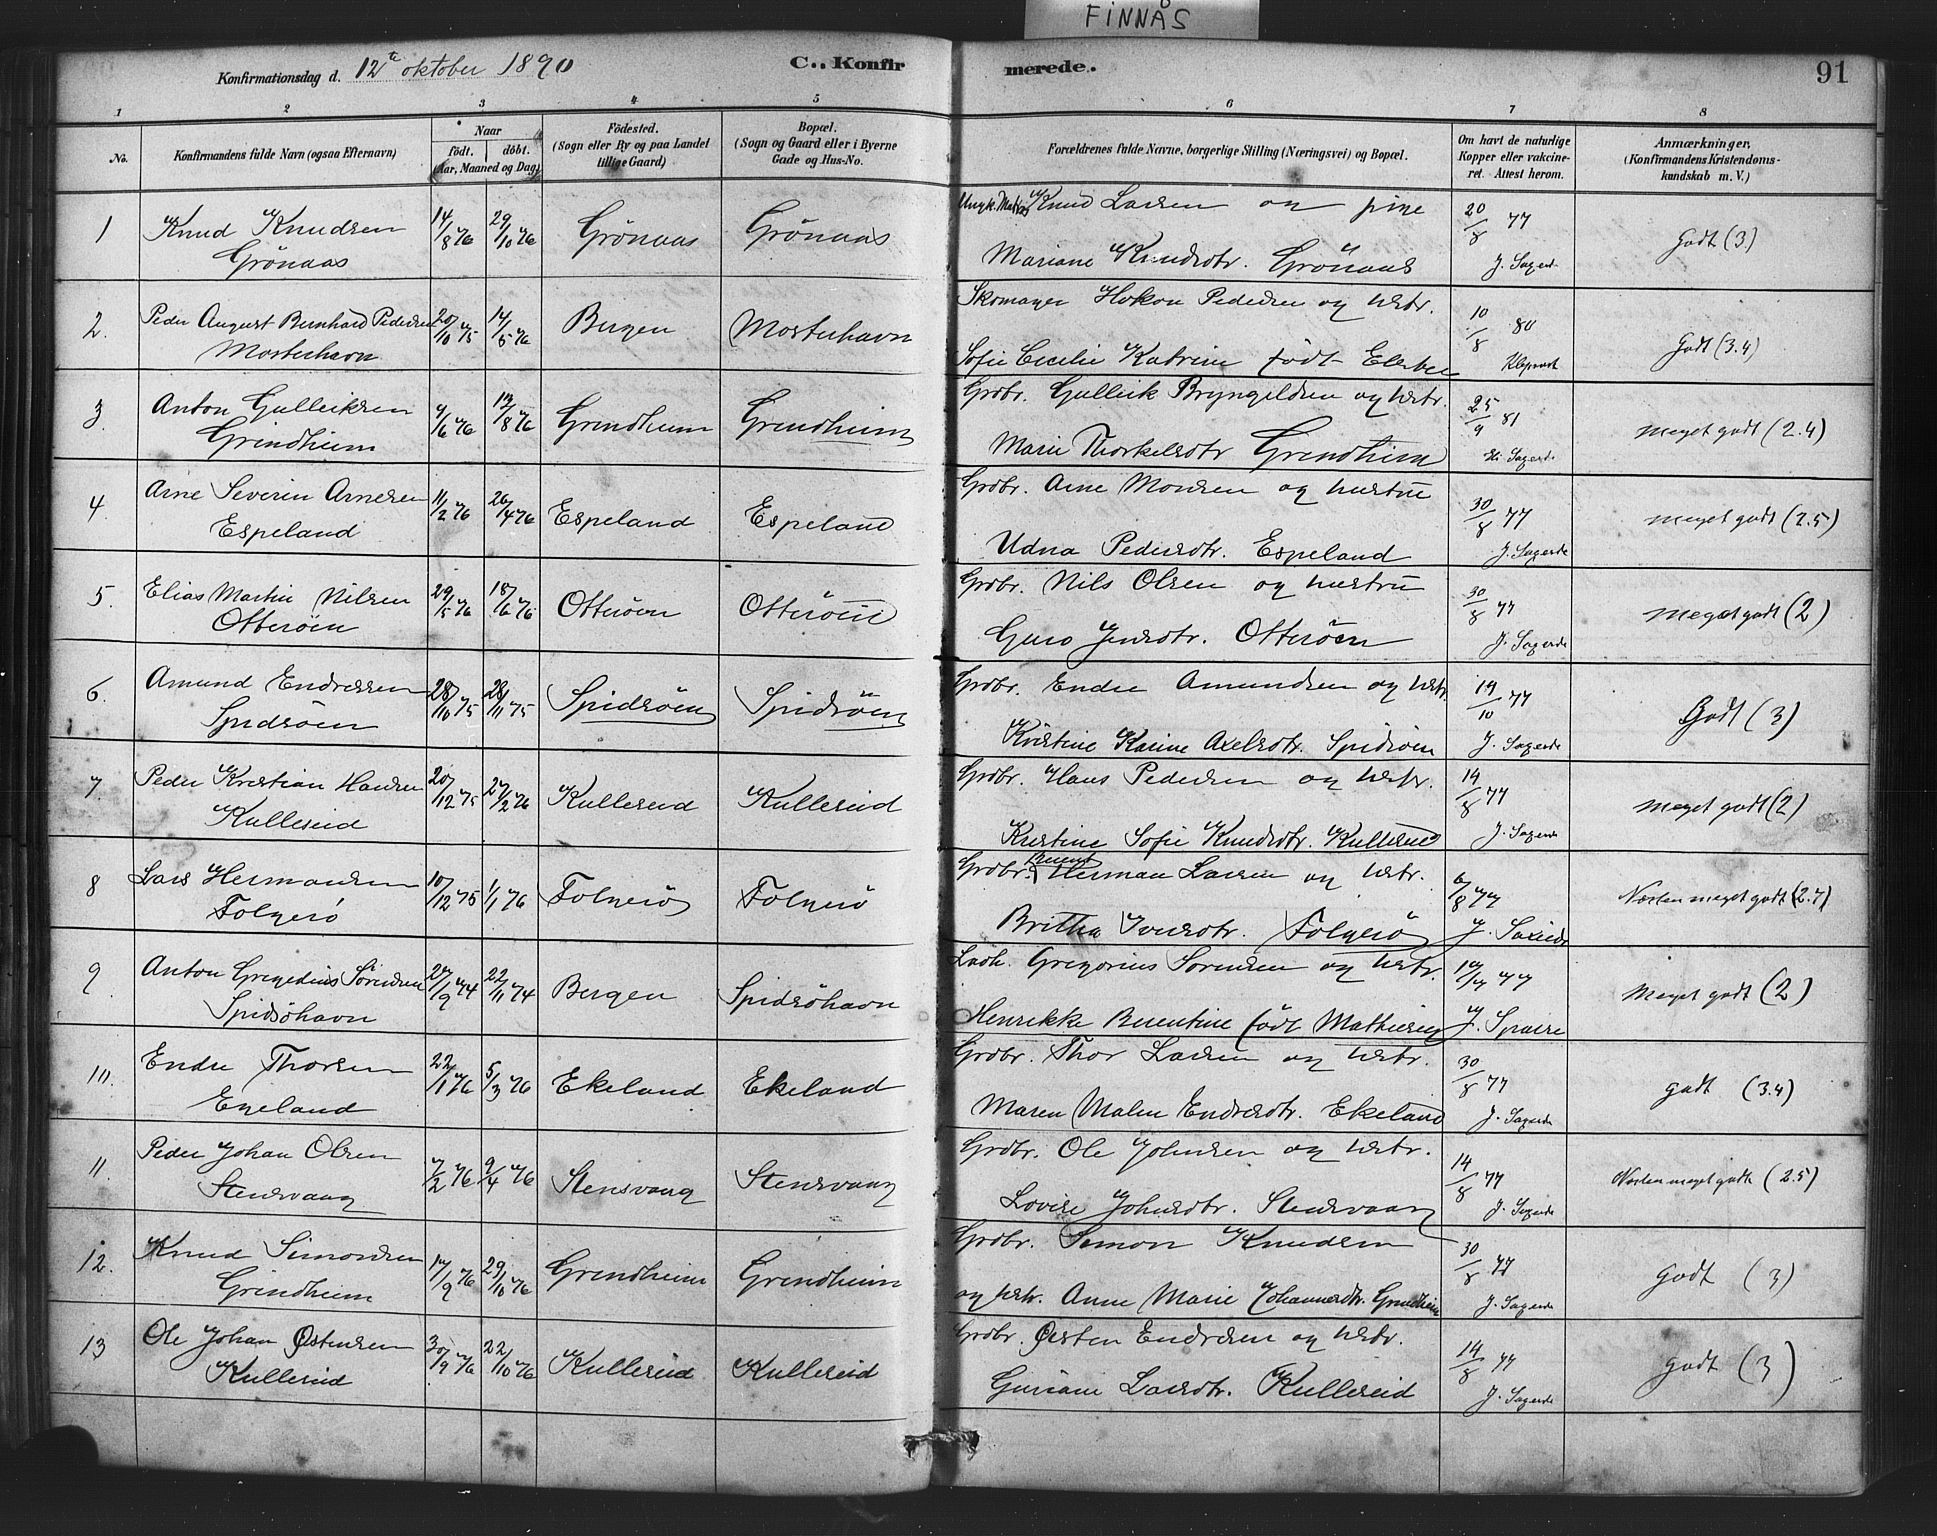 FINNÅS
Konfirmationsdag d. 12te oktober 1890
C.. Konfir merede.
91
1 2 3 4 5 6 7 8
No.
Konfirmandens fulde Navn (ogsaa Efternavn)
Naar
födt. döbt.
(Aar, Maaned og Dag)
Födested.
(Sogn eller By og paa Landet
tillige Gaard)
Bopæl.
(Sogn og Gaard eller i Byerne
Gade og Hus-No.
Forældrenes fulde Navne, borgerlige Stilling (Næringsvei) og Bopæl.
Om havt de naturlige
Kopper eller vakcine-
ret. Attest herom.
Anmærkninger,
(Konfirmandens Kristendoms-
kundskab m. V.)
1 Knud Knudsen
Grönaas
14/8 76 29/10 76 Grönaas Grönaas
Knud Larsen og pige
Mariane Knudsdtr. Grönaas
20/8 77
Godt (3)
2. Peder August Bernhard Pedersen
Mosterhavn
20/10 75 14/5 76 Bergen Mosterhavn
Skomager Hakon Pedersen og hstr.
Sofie Cecilie Katrine födt
10/8 80
Godt (3.4)
3. Anton Gulleiksen
Grindheim
4/6 76 13/8 76 Grindheim Grindheim
Grdbr. Gulleik Bryngeldsen og hstr.
Marie Thorkelsdtr Grindheim
25/9 81
meget godt (2.4)
4. Arne Severin Arnesen
Espeland
11/2 76 26/4 76 Espeland Espeland
Grdbr. Arne Monsen og hustru
Udna Pedersdtr. Espeland
30/8 77
J. Sagerde
meget godt (2.5)
5. Elias Martin Nilsen
Otteröen
29/5 76 18/6 76 Otteröen Otteröen
Grdbr. Nils Olsen og hustru
Guro Jensdtr. Otteröen
30/8 77
J. Sagerde
meget godt (2)
6. Amund Endresen
Spidsöen
28/10 75 28/11 75 Spidsöen Spidsöen
Grdbr. Endre Amundsen og hstr
Kristine Karine Axelsdtr. Spidsöen
19/10 77
J. Sagerde
Godt (3)
7. Peder Kristian Hansen
Kullereid
20/12 75 27/2 76 Kullereid Kullereid
Grdbr. Hans Pedersen og hstr.
Kristine Sofie Knudsdtr. Kullereid
14/8 77
J. Sagerde
meget godt (2)
8 Lars Hermansen
Folgerö
10/12 75 1/1 76 Folgerö Folgerö
Grdbr. Herman Larsen og hstr.
Britha Iversdtr. Folgerö
6/8 77
Næsten meget godt (2.7)
9. Anton Gregedius Sörensen
Spidsöhavn
20/9 74 22/11 74 Bergen Spidsöhavn
Gregorius Sörensen og hstr.
Henrikke Berentine födt Mathiesen
77
Meget godt (2)
10. Endre Thorsen
Egeland
22/1 76 5/3 76 Ekeland Ekeland
Grdbr. Thor Larsen og hstr.
Maren Malen Endresdtr. Ekeland
30/8 77
J. Sagerde
godt (3.4)
11. Peder Johan Olsen
Stensvaag
7/2 76 9/4 76 Stensvaag Stensvaag
Grdbr. Ole Johnsen og hstr.
Lovise Johnsdtr. Stensvaag
14/8 77
J. Sagerde
Næsten meget godt (2.5)
12. Knud Simonsen
Grindheim
17/9 76 29/10 76 Grindheim Grindheim
Grdbr. Simon Knudsen
og hstr. Anne Marie Johannesdtr. Grindheim
30/8 77
J. Sagerde
Godt (3)
13 Ole Johan Østensen
Kullereid
30/9 76 22/10 76 Kullereid Kullereid
Grdbr. Østen Endresen og hstr.
Guriane Larsdtr. Kullereid
14/8 77
J. Sagerde
godt (3)